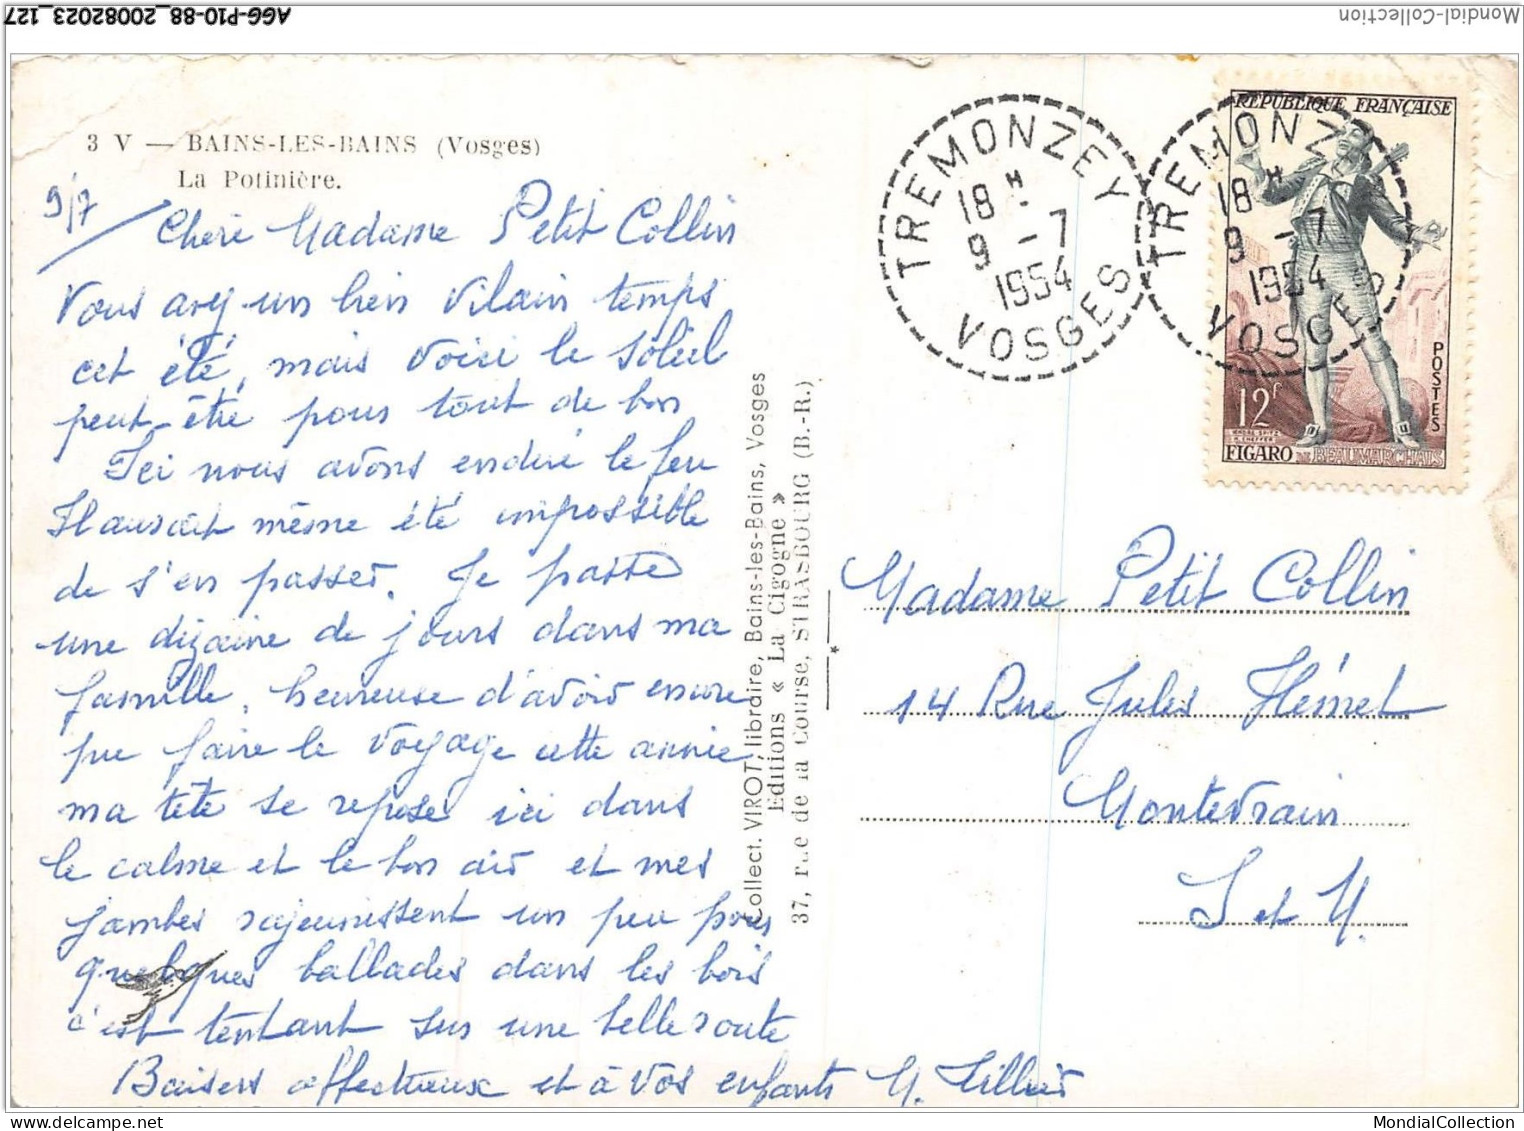 AGG-P10-88_20082023_127
Mondial-Collection
3 V — BAINS-LES-BAINS (Vosges)
La Potinière.
9/7
Chère Madame Petit Collin
Vous avez un bien vilain temps
cet été, mais voici le soleil
peut-être pour tout de bon
Ici nous avons enduré le feu
Il aurait même été impossible
de s'en passer. Je passe
une dizaine de jours dans ma
famille, heureuse d'avoir encore
pu faire le voyage cette année
ma tête se repose ici dans
le calme et le bon air et mes
jambes rajeunissent un peu pour
quelques ballades dans les bois
c'est tentant sur une belle route
Baisers affectueux et à vos enfants M. Tillier
Collect. VIROT, libraire, Bains-les-Bains, Vosges
Editions « La Cigogne »
37, rue de la Course, STRASBOURG (B.-R.)
TREMONZEY
18 H
9 - 7
1954
VOSGES
TREMONZ
18 H
9 - 7
1954
VOSGES
REPUBLIQUE FRANÇAISE
POSTES
12F
FIGARO DE BEAUMARCHAIS
Madame Petit Collin
14 Rue Jules Hémet
Montévrain
S et M.
MondialCollection